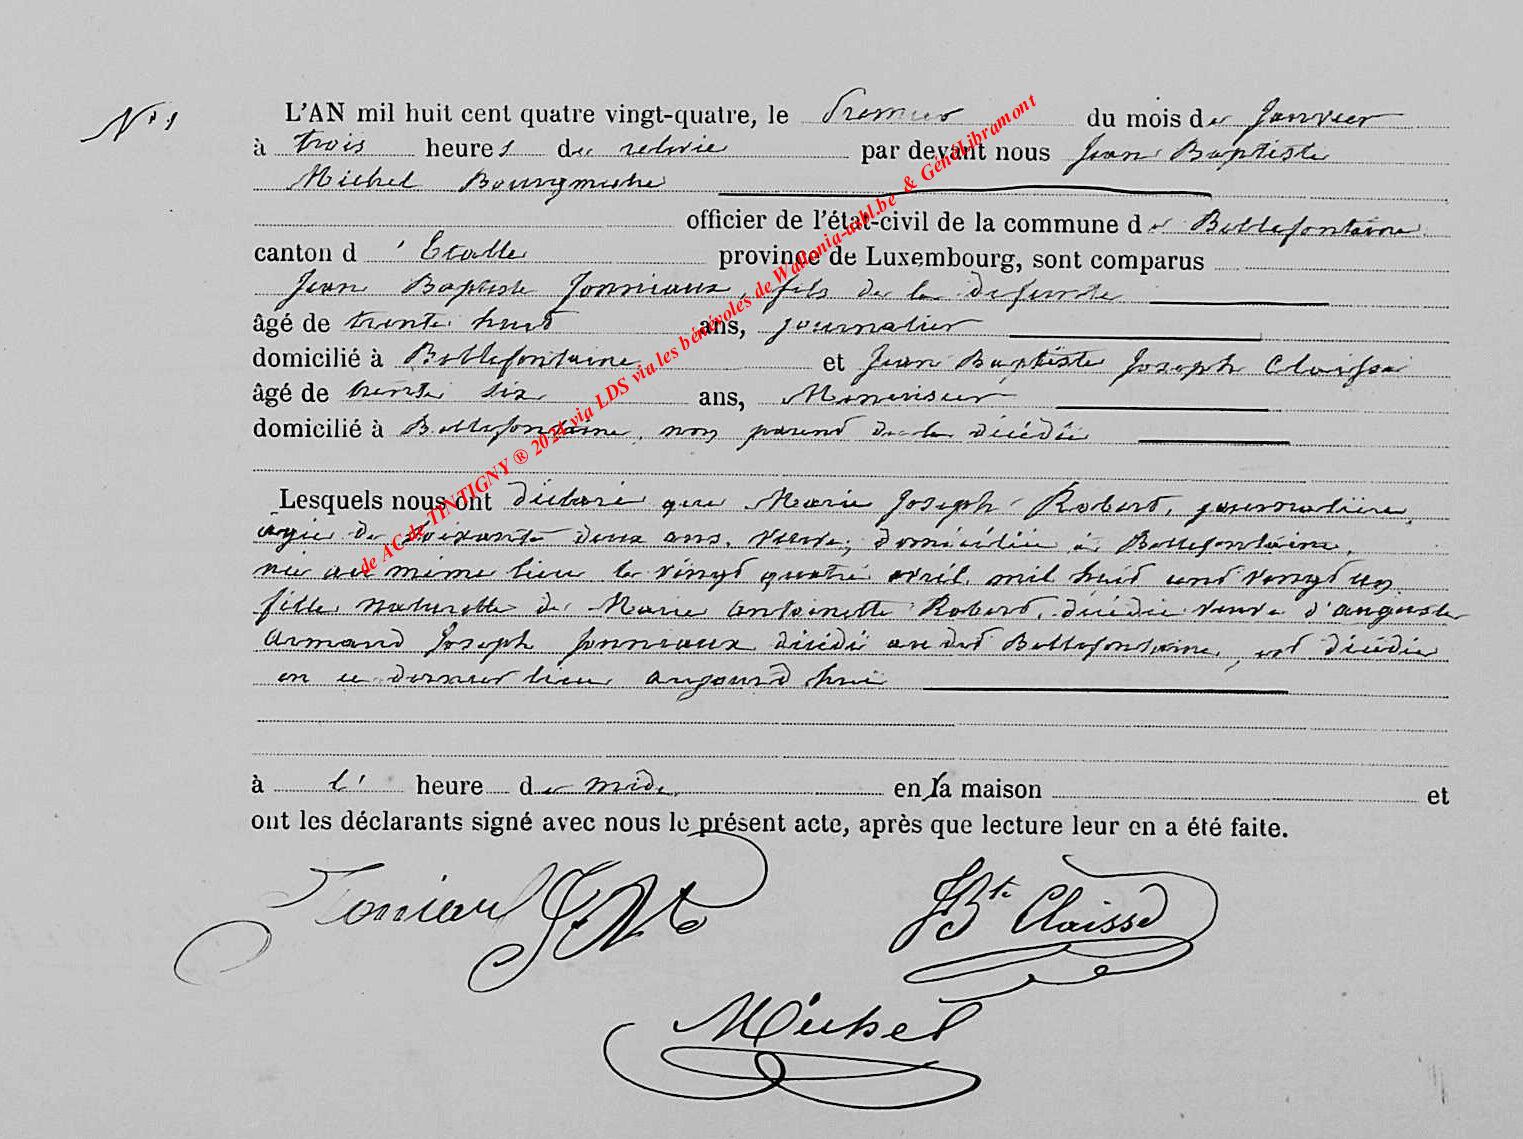 N° 1
L'AN mil huit cent quatre vingt-quatre, le Premier du mois de Janvier
à trois heures de relevée par devant nous Jean Baptiste
Michel Bourgmestre
officier de l'état-civil de la commune de Bellefontaine
canton d'Etalle province de Luxembourg, sont comparus
Jean Baptiste Jonniaux, fils de la défunte
âgé de trente huit ans, journalier
domicilié à Bellefontaine et Jean Baptiste Joseph Claisse
âgé de trente six ans, Menuisier
domicilié à Bellefontaine, non parent de la décédée
Lesquels nous ont déclaré que Marie Joseph Robert, journalière,
agée de soixante deux ans, veuve, domiciliée à Bellefontaine,
née au même lieu le vingt quatre avril mil huit cent vingt un
fille naturelle de Marie Antoinette Robert, décédée veuve d'auguste
armand Joseph Jonniaux décédé au dit Bellefontaine, est décédée
en ce dernier lieu aujourd'hui
à l' heure de midi en la maison et
ont les déclarants signé avec nous le présent acte, après que lecture leur en a été faite.
JBte Claisse
Michel
de AC de TINTIGNY ® 2021 via LDS via les bénévoles de Wallonia-asbl.be & GénéLibramont